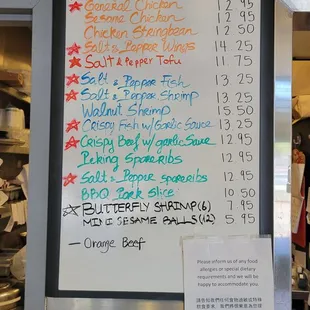 ★ General Chicken 12 95
Sesame Chicken 12 95
Chicken Stringbean 12 50
★ Salt & Pepper Wings 14.25
★ Salt & Pepper Tofu 11.75
★ Salt & Pepper Fish 13.25
★ Salt & Pepper Shrimp 13 25
Walnut Shrimp 15 50
★ Crispy Fish w/ Garlic Sauce 13.25
★ Crispy Beef w/ garlic Sauce 12 95
Peking Spareribs 12 95
★ Salt & Pepper spareribs 12 95
BBQ Pork Slice 10 50
★ BUTTERFLY SHRIMP (6) 7 95
MINI SESAME BALLS (12) 5 95
— Orange Beef
Please inform us of any food
allergies or special dietary
requirements and we will be
happy to accommodate you